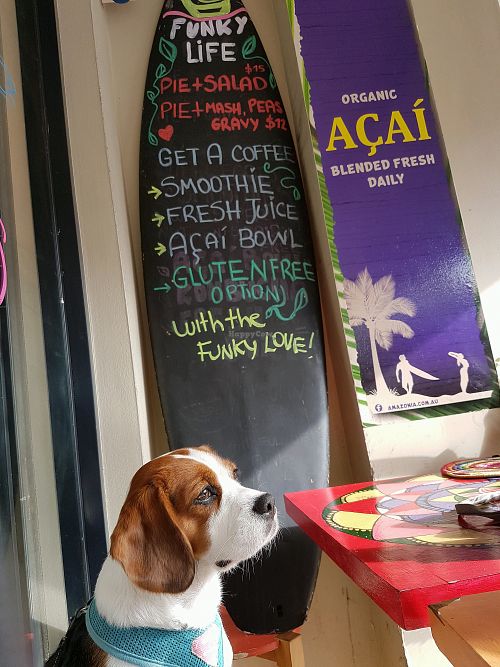 FUNKY
LIFE
PIE+SALAD $15
PIE+MASH, PEAS
GRAVY $12
GET A COFFEE
SMOOTHIE
FRESH JUICE
AÇAÍ BOWL
GLUTEN FREE
OPTION
with the
FUNKY LOVE!
ORGANIC
AÇAÍ
BLENDED FRESH
DAILY
AMAZONIA.COM.AU